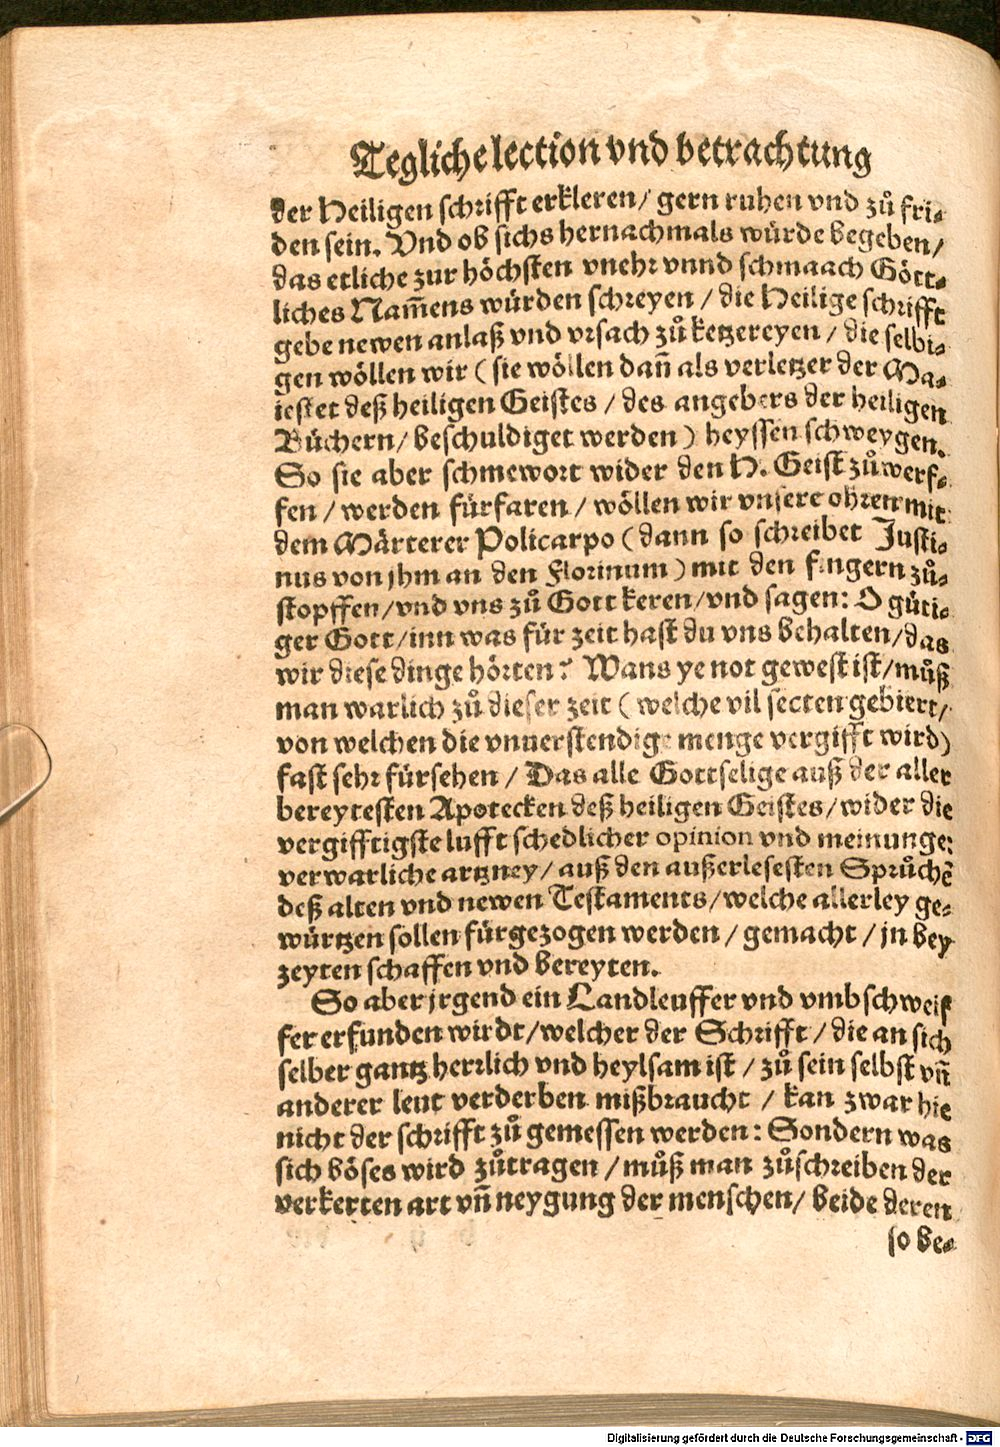 Tegliche lection vnd betrachtung
der Heiligen schrifft erkleren / gern ruhen vnd zů fri⸗
den sein. Vnd ob sichs hernachmals würde begeben /
das etliche zur höchsten vnehr vnnd schmaach Gött⸗
liches Nam̃ens würden schreyen / die Heilige schrifft
gebe newen anlaß vnd vrsach zů ketzereyen / die selbi⸗
gen wöllen wir ( sie wöllen dañ als verletzer der Ma⸗
iestet deß heiligen Geistes / des angebers der heiligen
Büchern / beschuldiget werden ) heyssen schweygen.
So sie aber schmewort wider den H. Geist zůwerf⸗
fen / werden fürfaren / wöllen wir vnsere ohren mit
dem Märterer Policarpo ( dann so schreibet Justi⸗
nus von jhm an den Florinum ) mit den fingern zů⸗
stopffen / vnd vns zů Gott keren / vnd sagen: O güti⸗
ger Gott / inn was für zeit hast du vns behalten / das
wir diese dinge hörten? Wans ye not gewest ist / můß
man warlich zů dieser zeit ( welche vil secten gebiert /
von welchen die vnuerstendige menge vergifft wird )
fast sehr fürsehen / Das alle Gottselige auß der aller
bereytesten Apotecken deß heiligen Geistes / wider die
vergifftigste lufft schedlicher opinion vnd meinunge:
verwarliche artzney / auß den außerlesesten Sprůchẽ
deß alten vnd newen Testaments / welche allerley ge⸗
würtzen sollen fürgezogen werden / gemacht / jn bey
zeyten schaffen vnd bereyten.
So aber jrgend ein Landleuffer vnd vmbschweif
fer erfunden wirdt / welcher der Schrifft / die an sich
selber gantz herrlich vnd heylsam ist / zů sein selbst vñ
anderer leut verderben mißbraucht / kan zwar hie
nicht der schrifft zů gemessen werden: Sondern was
sich böses wird zůtragen / můß man zůschreiben der
verkerten art vñ neygung der menschen / beide deren
so be⸗
Digitalisierung gefördert durch die Deutsche Forschungsgemeinschaft - DFG